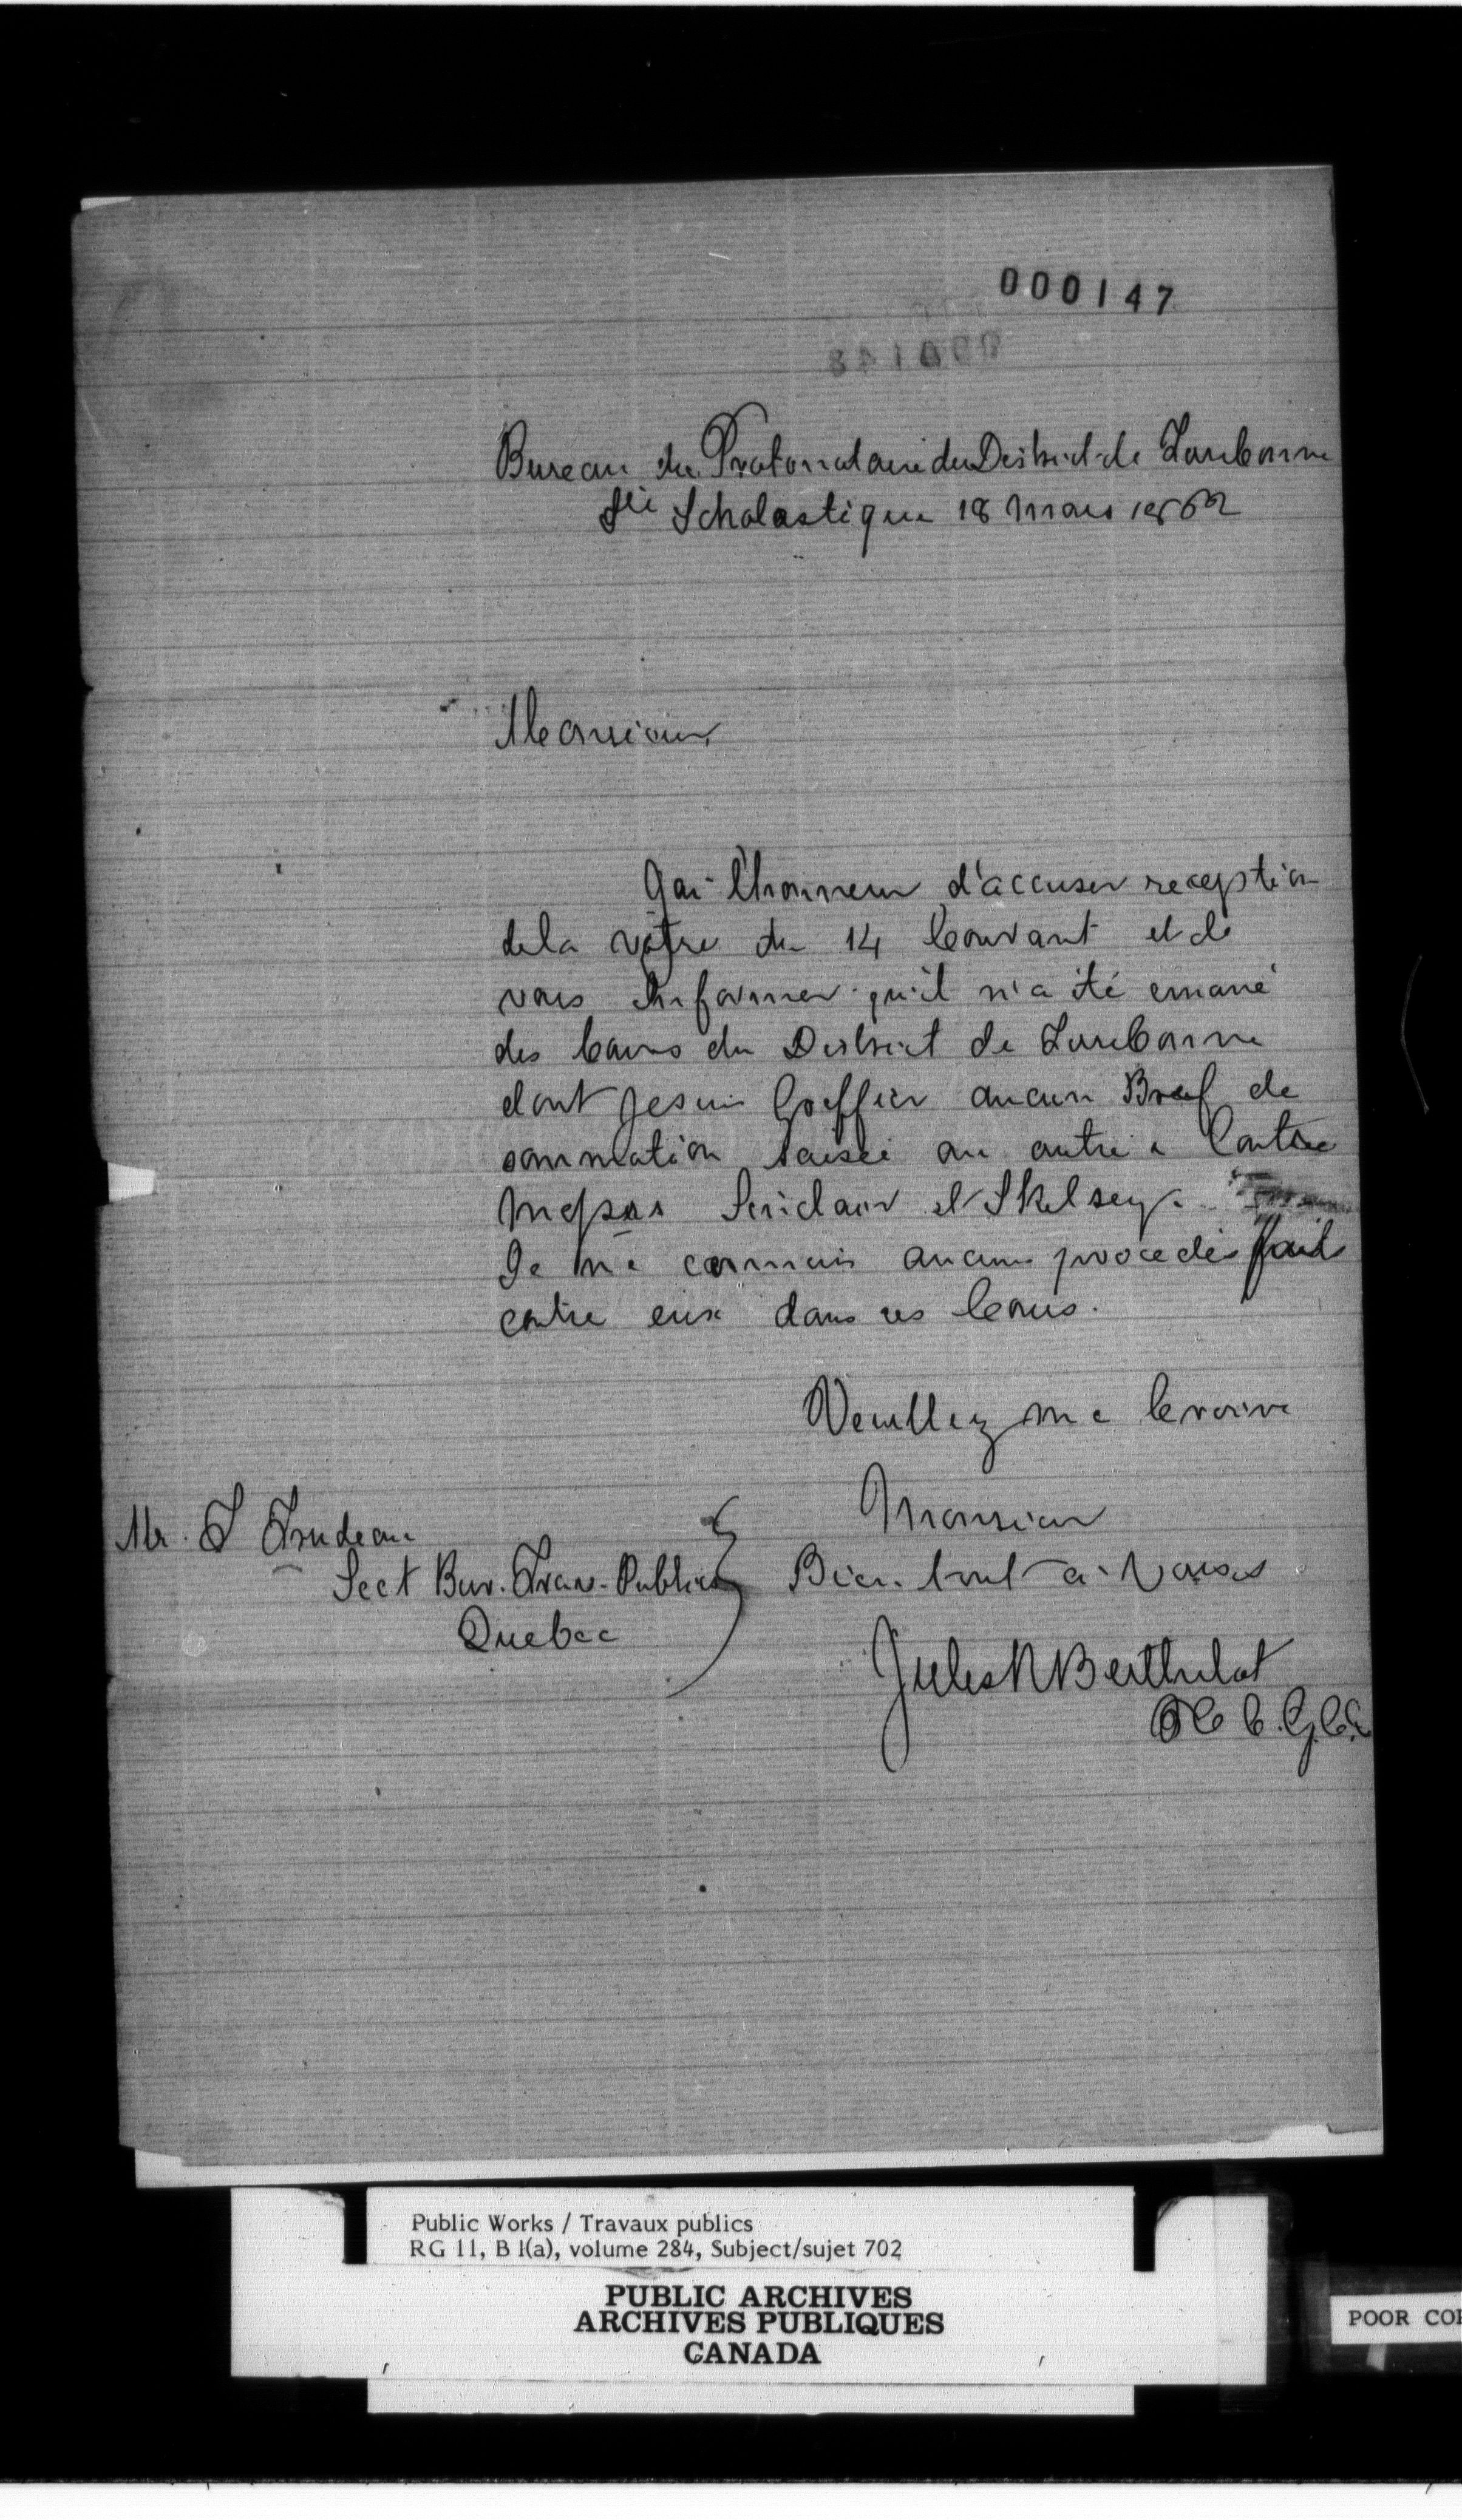 000147
Bureau du Protonotaire du District de Terrebonne
Ste Scholastique 18 Mars 1862
Monsieur,
J'ai l'honneur d'accuser reception
de la vôtre du 14 Courant et de
vous informer qu'il n'a été emané
des Cours du District de Terrebonne
dont je suis Greffier aucun Bref de
sommation saisie ou autre Contre
Messrs Sinclair et Skelsey.
Je ne connais aucuns procedés faits
contre eux dans ces Cours.
Veuillez me Croire
Monsieur
Mr. T Trudeau
Sect Bur. Trav. Publics
Bien tout à Vous
Quebec
Jules R Berthelot
Public Works / Travaux publics
RG 11, B 1(a), volume 284, Subject/sujet 702
PUBLIC ARCHIVES
ARCHIVES PUBLIQUES
CANADA
POOR